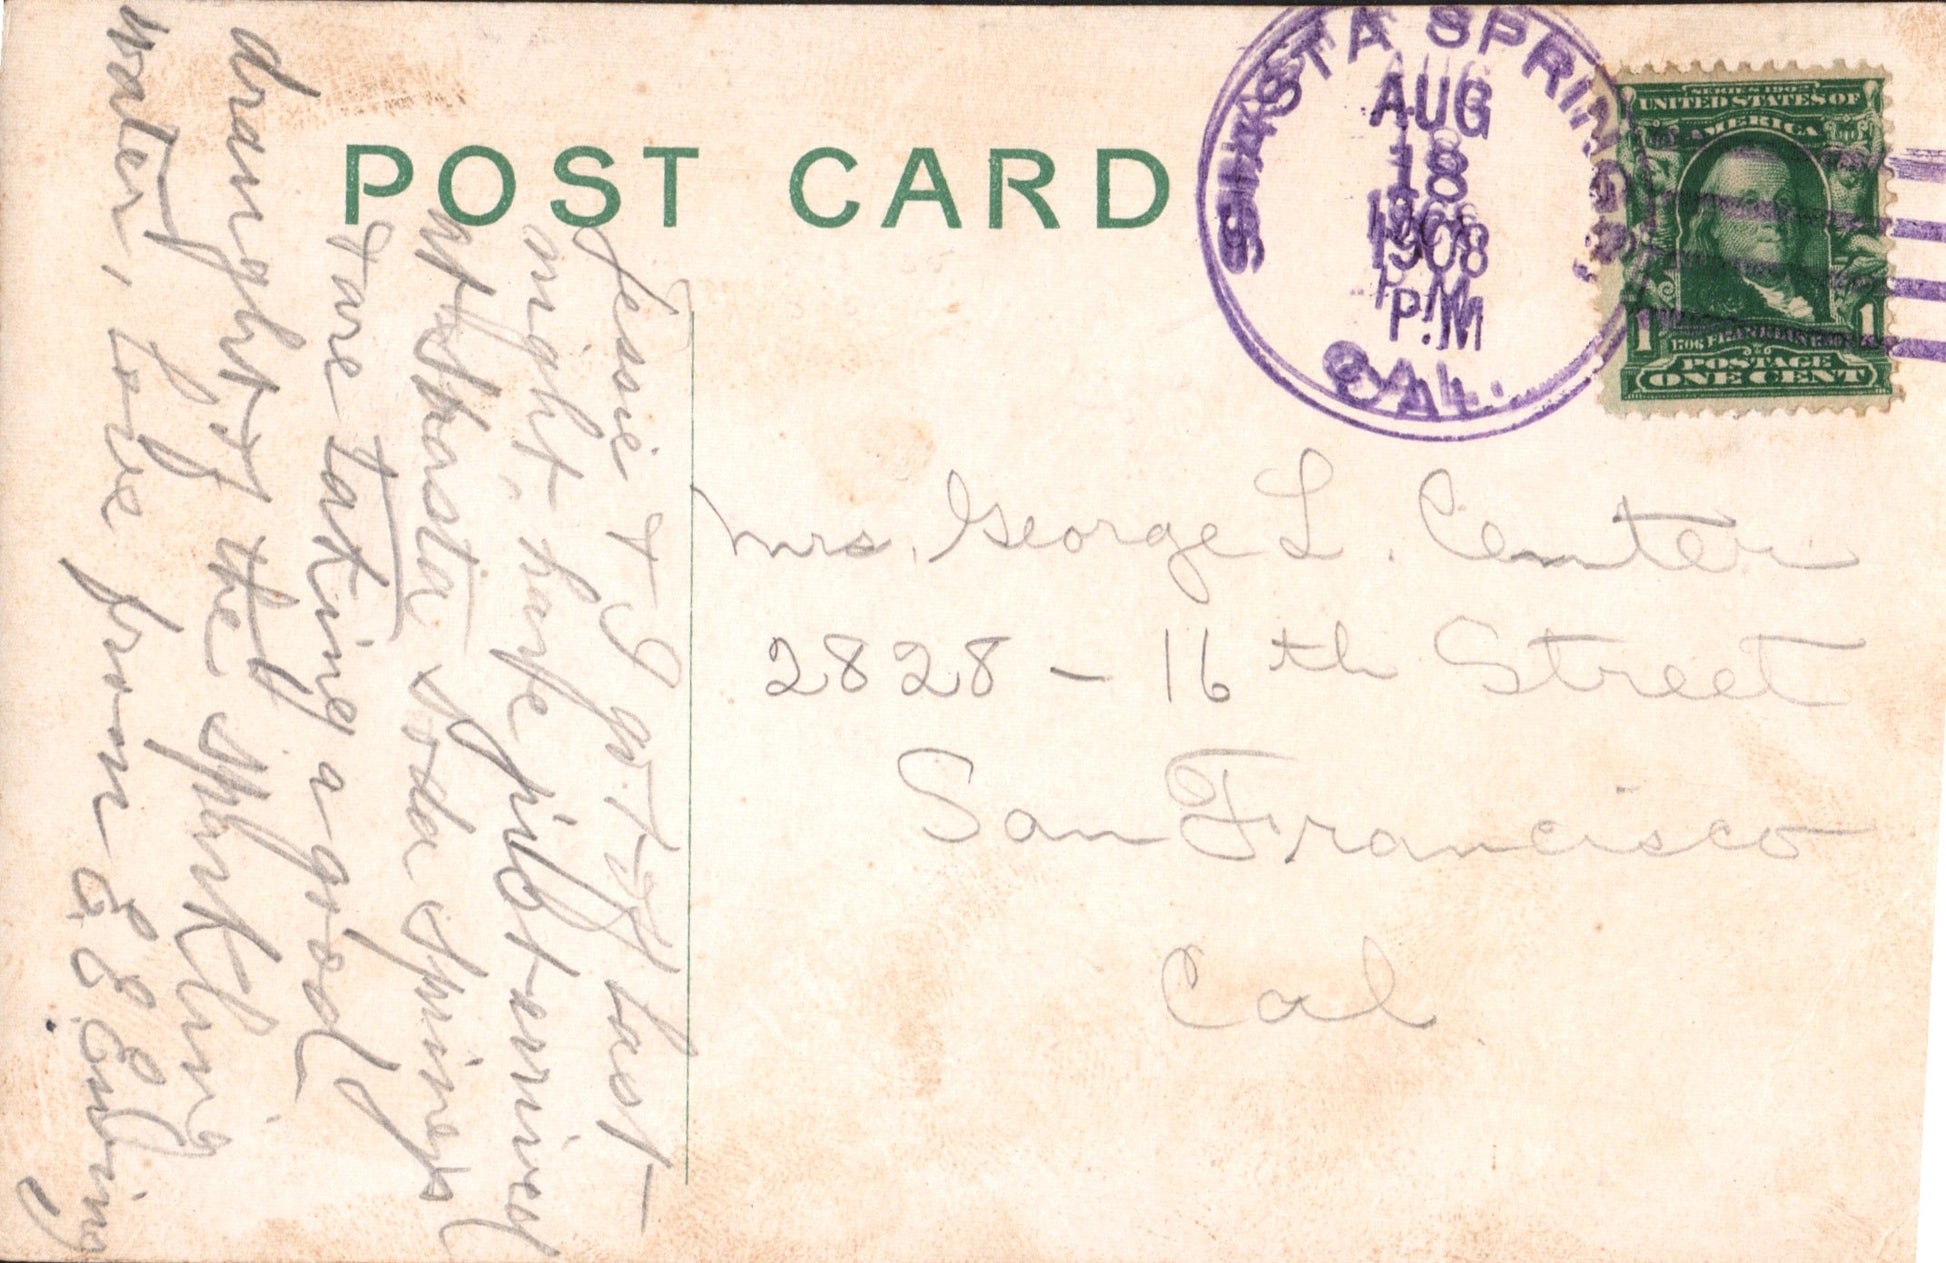 POST CARD
SHASTA SPRINGS,
AUG
18
1908
P.M
CAL.
SERIES 1902
UNITED STATES OF
AMERICA
1706 FRANKLIN 1790
1 1
POSTAGE
ONE CENT
Mrs. George L. Center
2828 - 16th Street
San Francisco
Cal
Jessie & I got off last
night, have just arrived
at Shasta soda springs
& are taking a good
draught of the sparkling
water, love from E E Ewing